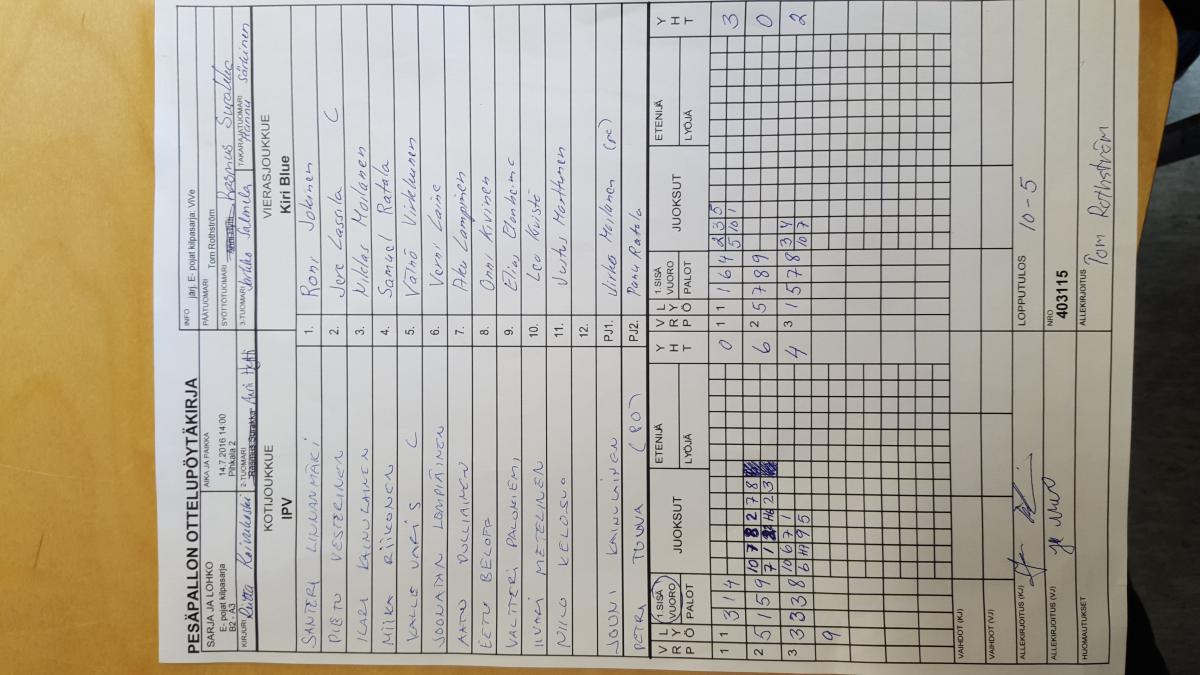 PESÄPALLON OTTELUPÖYTÄKIRJA
SARJA JA LOHKO
E- pojat kilpasarja
B2 - A3
AIKA JA PAIKKA
14.7.2016 14:00
Pihkala 2
INFO järj. E- pojat kilpasarja: ViVe
PÄÄTUOMARI Tom Rothström
SYÖTTÖTUOMARI Rasmus
KIRJURI Riitta
2-TUOMARI
3-TUOMARI Jarkko Salmela
TAKARAJATUOMARI Hannu Särkinen
KOTIJOUKKUE
IPV
VIERASJOUKKUE
Kiri Blue
SANTERI LINNANMÄKI 1. Roni Jokinen
PIETU VESTERINEN 2. Jere Lassila C
ILARI KAINULAINEN 3. Niklas Moilanen
MIIKA RIIKONEN 4. Samuel Ratala
KALLE VARIS C 5. Väinö Virkkunen
JOONATAN LOMPIAINEN 6. Verni Laine
AATU PULLIAINEN 7. Aku Lamminen
EETU BELOFF 8. Onni Kivinen
VALTTERI PALONIEMI 9. Elia
IIVARI METELINEN 10. Leo Koivisto
NIILO KELOSUO 11. Justus Marttunen
12.
JOUNI KAINULAINEN PJ1. Mirko Moilanen
PETRI PJ2. Panu Ratala
VRP LYÖ 1.SISÄ VUORO PALOT JUOKSUT ETENIJÄ LYÖJÄ YHT
VRP LYÖ 1.SISÄ VUORO PALOT JUOKSUT ETENIJÄ LYÖJÄ YHT
1 1 3 1 4 0
1 1 1 6 4 2 3 5 3
5 10 1
2 5 1 5 9 10 7 8 2 7 8 6
2 5 7 8 9 0
3 3 3 3 8 10 6 7 1 4
3 1 5 7 8 3 4 2
10 7
9
VAIHDOT (KJ)
VAIHDOT (VJ)
ALLEKIRJOITUS (KJ)
ALLEKIRJOITUS (VJ)
HUOMAUTUKSET
LOPPUTULOS 10-5
NRO
403115
ALLEKIRJOITUS Tom Rothström